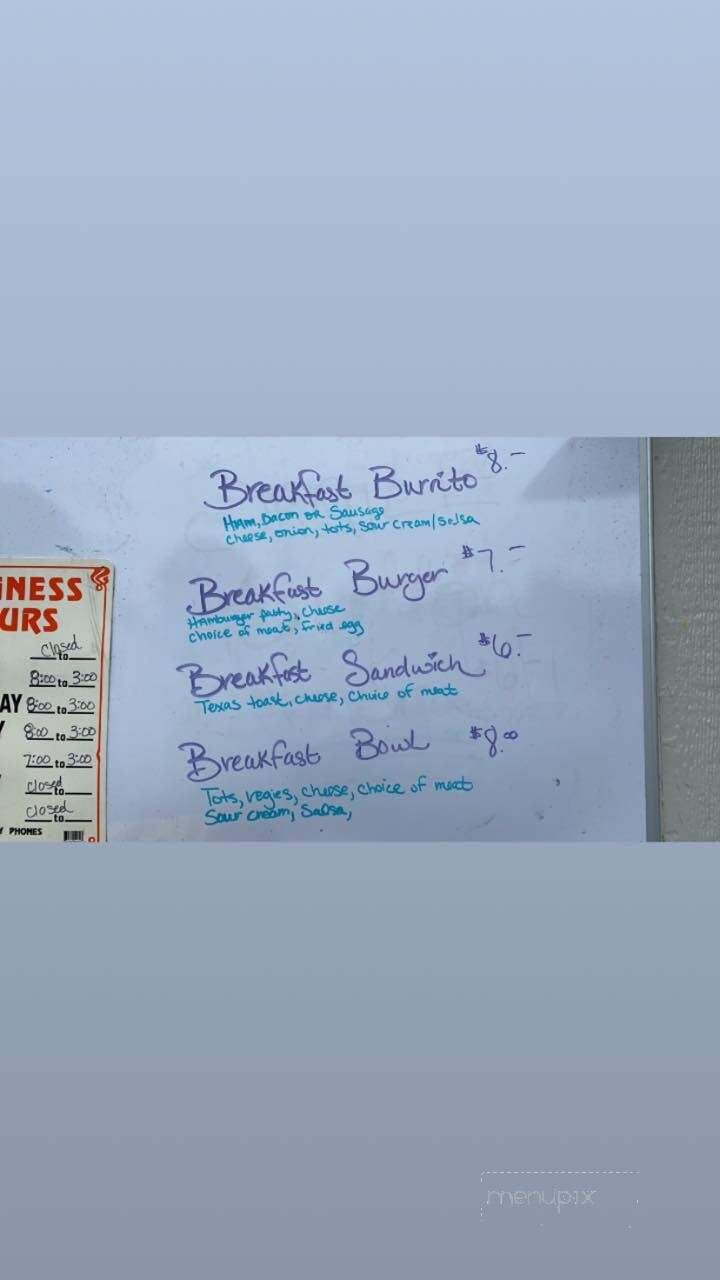 Breakfast Burrito $8.-
Ham, Bacon or Sausage
cheese, onion, tots, sour cream/salsa
Breakfast Burger $7.-
Hamburger patty, cheese
choice of meat, fried egg
Breakfast Sandwich $6.-
Texas toast, cheese, choice of meat
Breakfast Bowl $8.00
Tots, vegies, cheese, choice of meat
Sour cream, Salsa,
INESS
URS
closed
to
8:00 to 3:00
AY 8:00 to 3:00
8:00 to 3:00
7:00 to 3:00
closed
to
closed
to
PHONES
menupix